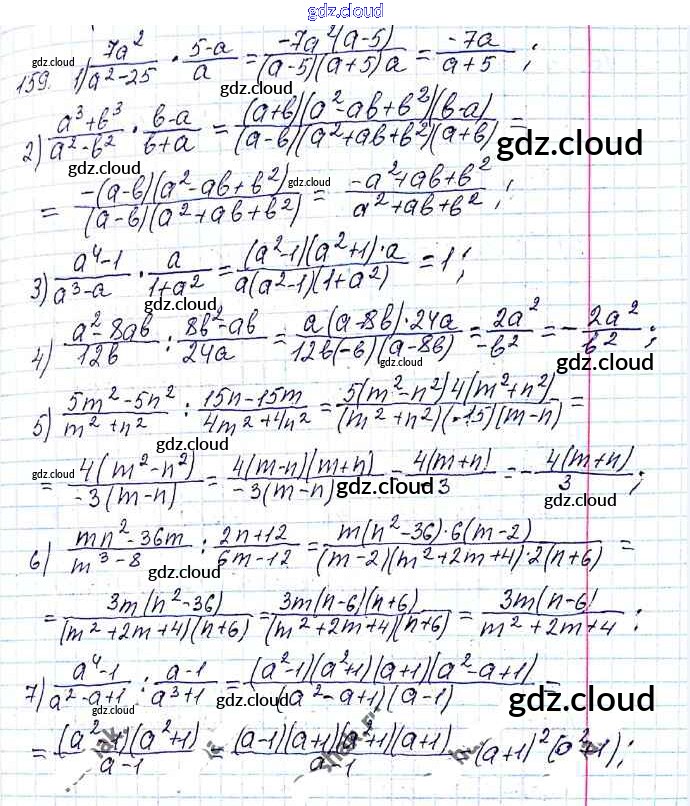 gdz.cloud
159. 1) 7a²/(a²-25) · (5-a)/a = -7a²(a-5)/((a-5)(a+5)a) = -7a/(a+5);
2) (a³+b³)/(a²-b²) · (b-a)/(b+a) = (a+b)(a²-ab+b²)(b-a)/((a-b)(a²+ab+b²)(a+b)) =
= -(a-b)(a²-ab+b²)/((a-b)(a²+ab+b²)) = (-a²+ab+b²)/(a²+ab+b²);
3) (a⁴-1)/(a³-a) · a/(1+a²) = (a²-1)(a²+1)·a/(a(a²-1)(1+a²)) = 1;
4) (a²-8ab)/12b : (8b²-ab)/24a = a(a-8b)·24a/(12b(-b)(a-8b)) = 2a²/-b² = -2a²/b²;
5) (5m²-5n²)/(m²+n²) : (15n-15m)/(4m²+4n²) = 5(m²-n²)4(m²+n²)/((m²+n²)(-15)(m-n)) =
= 4(m²-n²)/(-3(m-n)) = 4(m-n)(m+n)/(-3(m-n)) = 4(m+n)/-3 = -4(m+n)/3;
6) (mn²-36m)/(m³-8) : (2n+12)/(6m-12) = m(n²-36)·6(m-2)/((m-2)(m²+2m+4)·2(n+6)) =
= 3m(n²-36)/((m²+2m+4)(n+6)) = 3m(n-6)(n+6)/((m²+2m+4)(n+6)) = 3m(n-6)/(m²+2m+4);
7) (a⁴-1)/(a²-a+1) : (a-1)/(a³+1) = (a²-1)(a²+1)(a+1)(a²-a+1)/((a²-a+1)(a-1)) =
= (a²-1)(a²+1)/(a-1) = (a-1)(a+1)(a²+1)(a+1)/(a-1) = (a+1)²(a²+1);